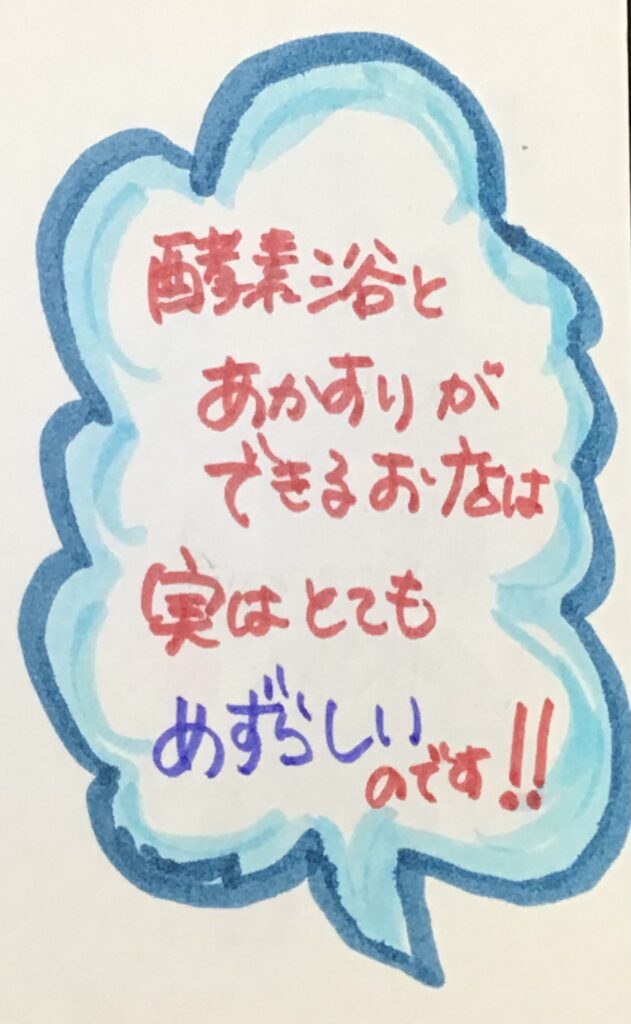 酵素浴と
あかすりが
できるお店は
実はとても
めずらしい
のです!!